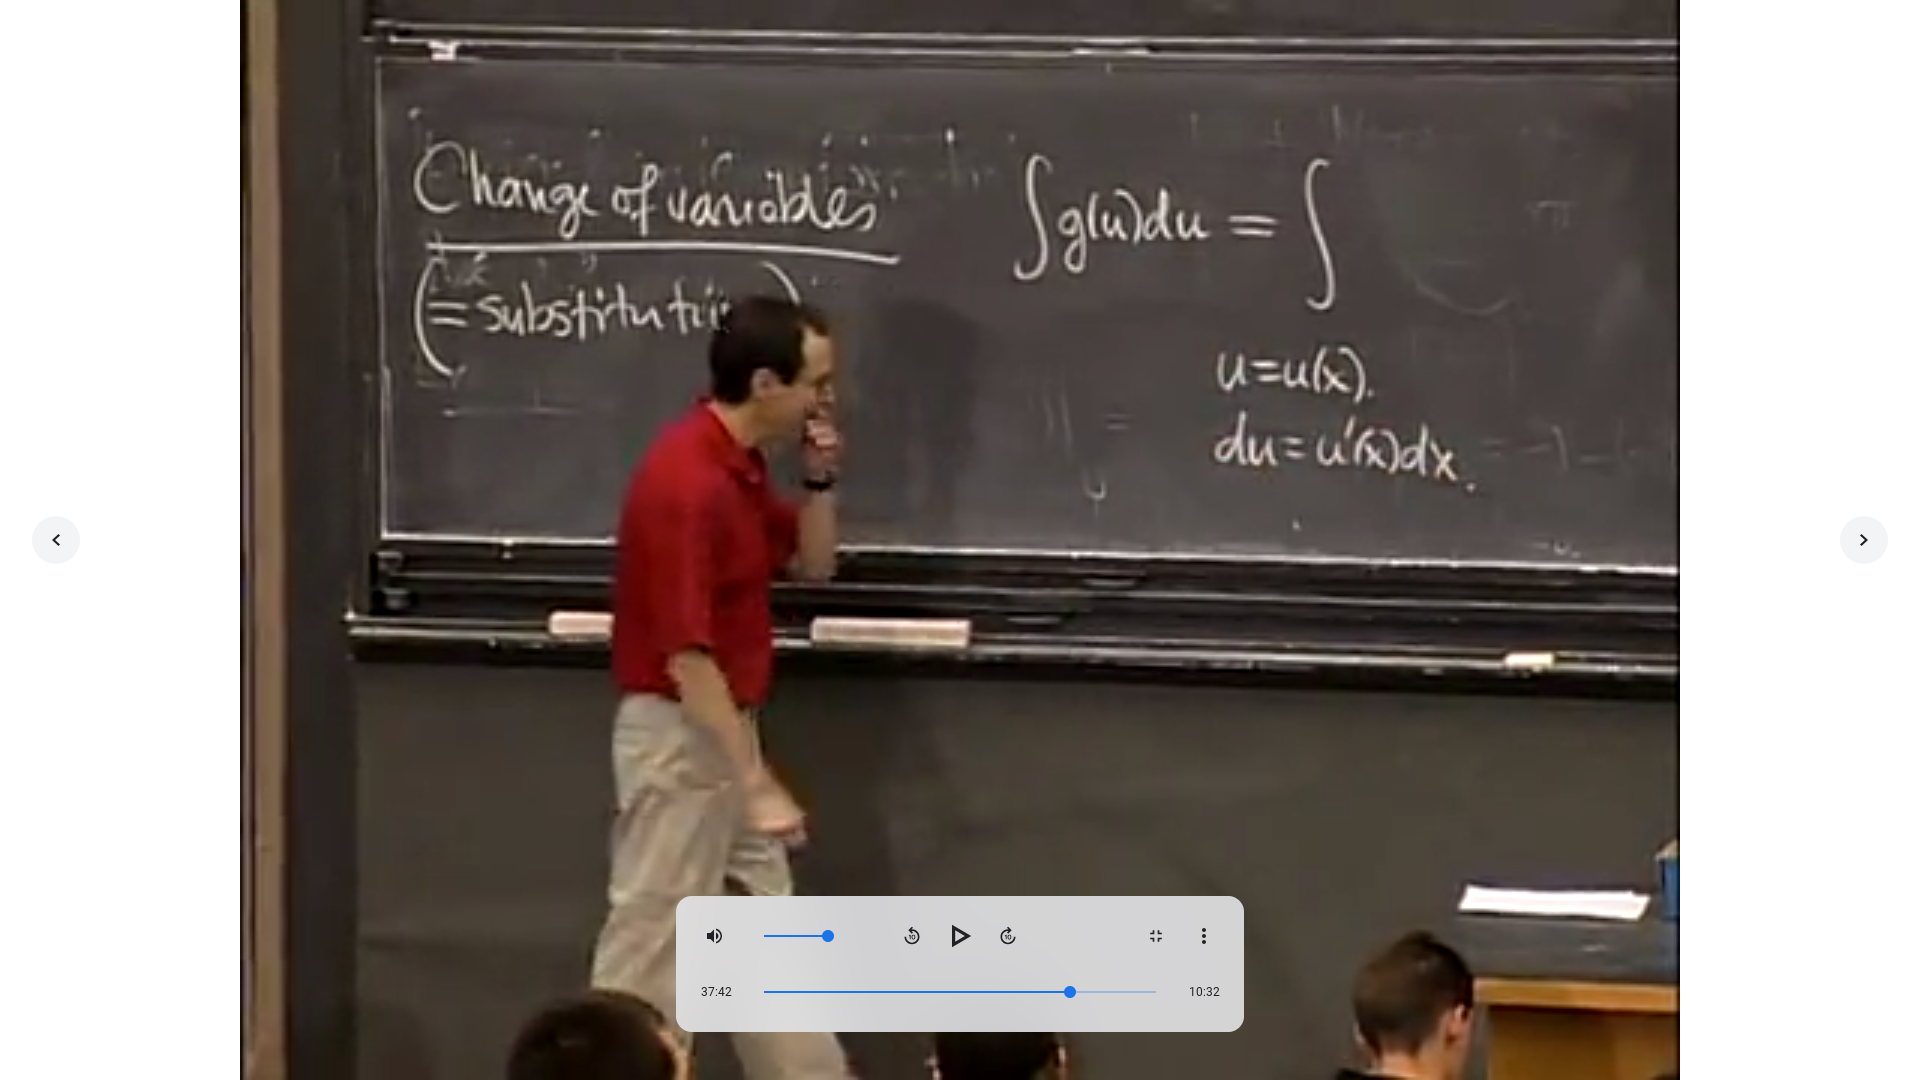 Change of variables
(= substitution)
∫g(u)du = ∫
u=u(x).
du=u'(x)dx.
37:42
10:32